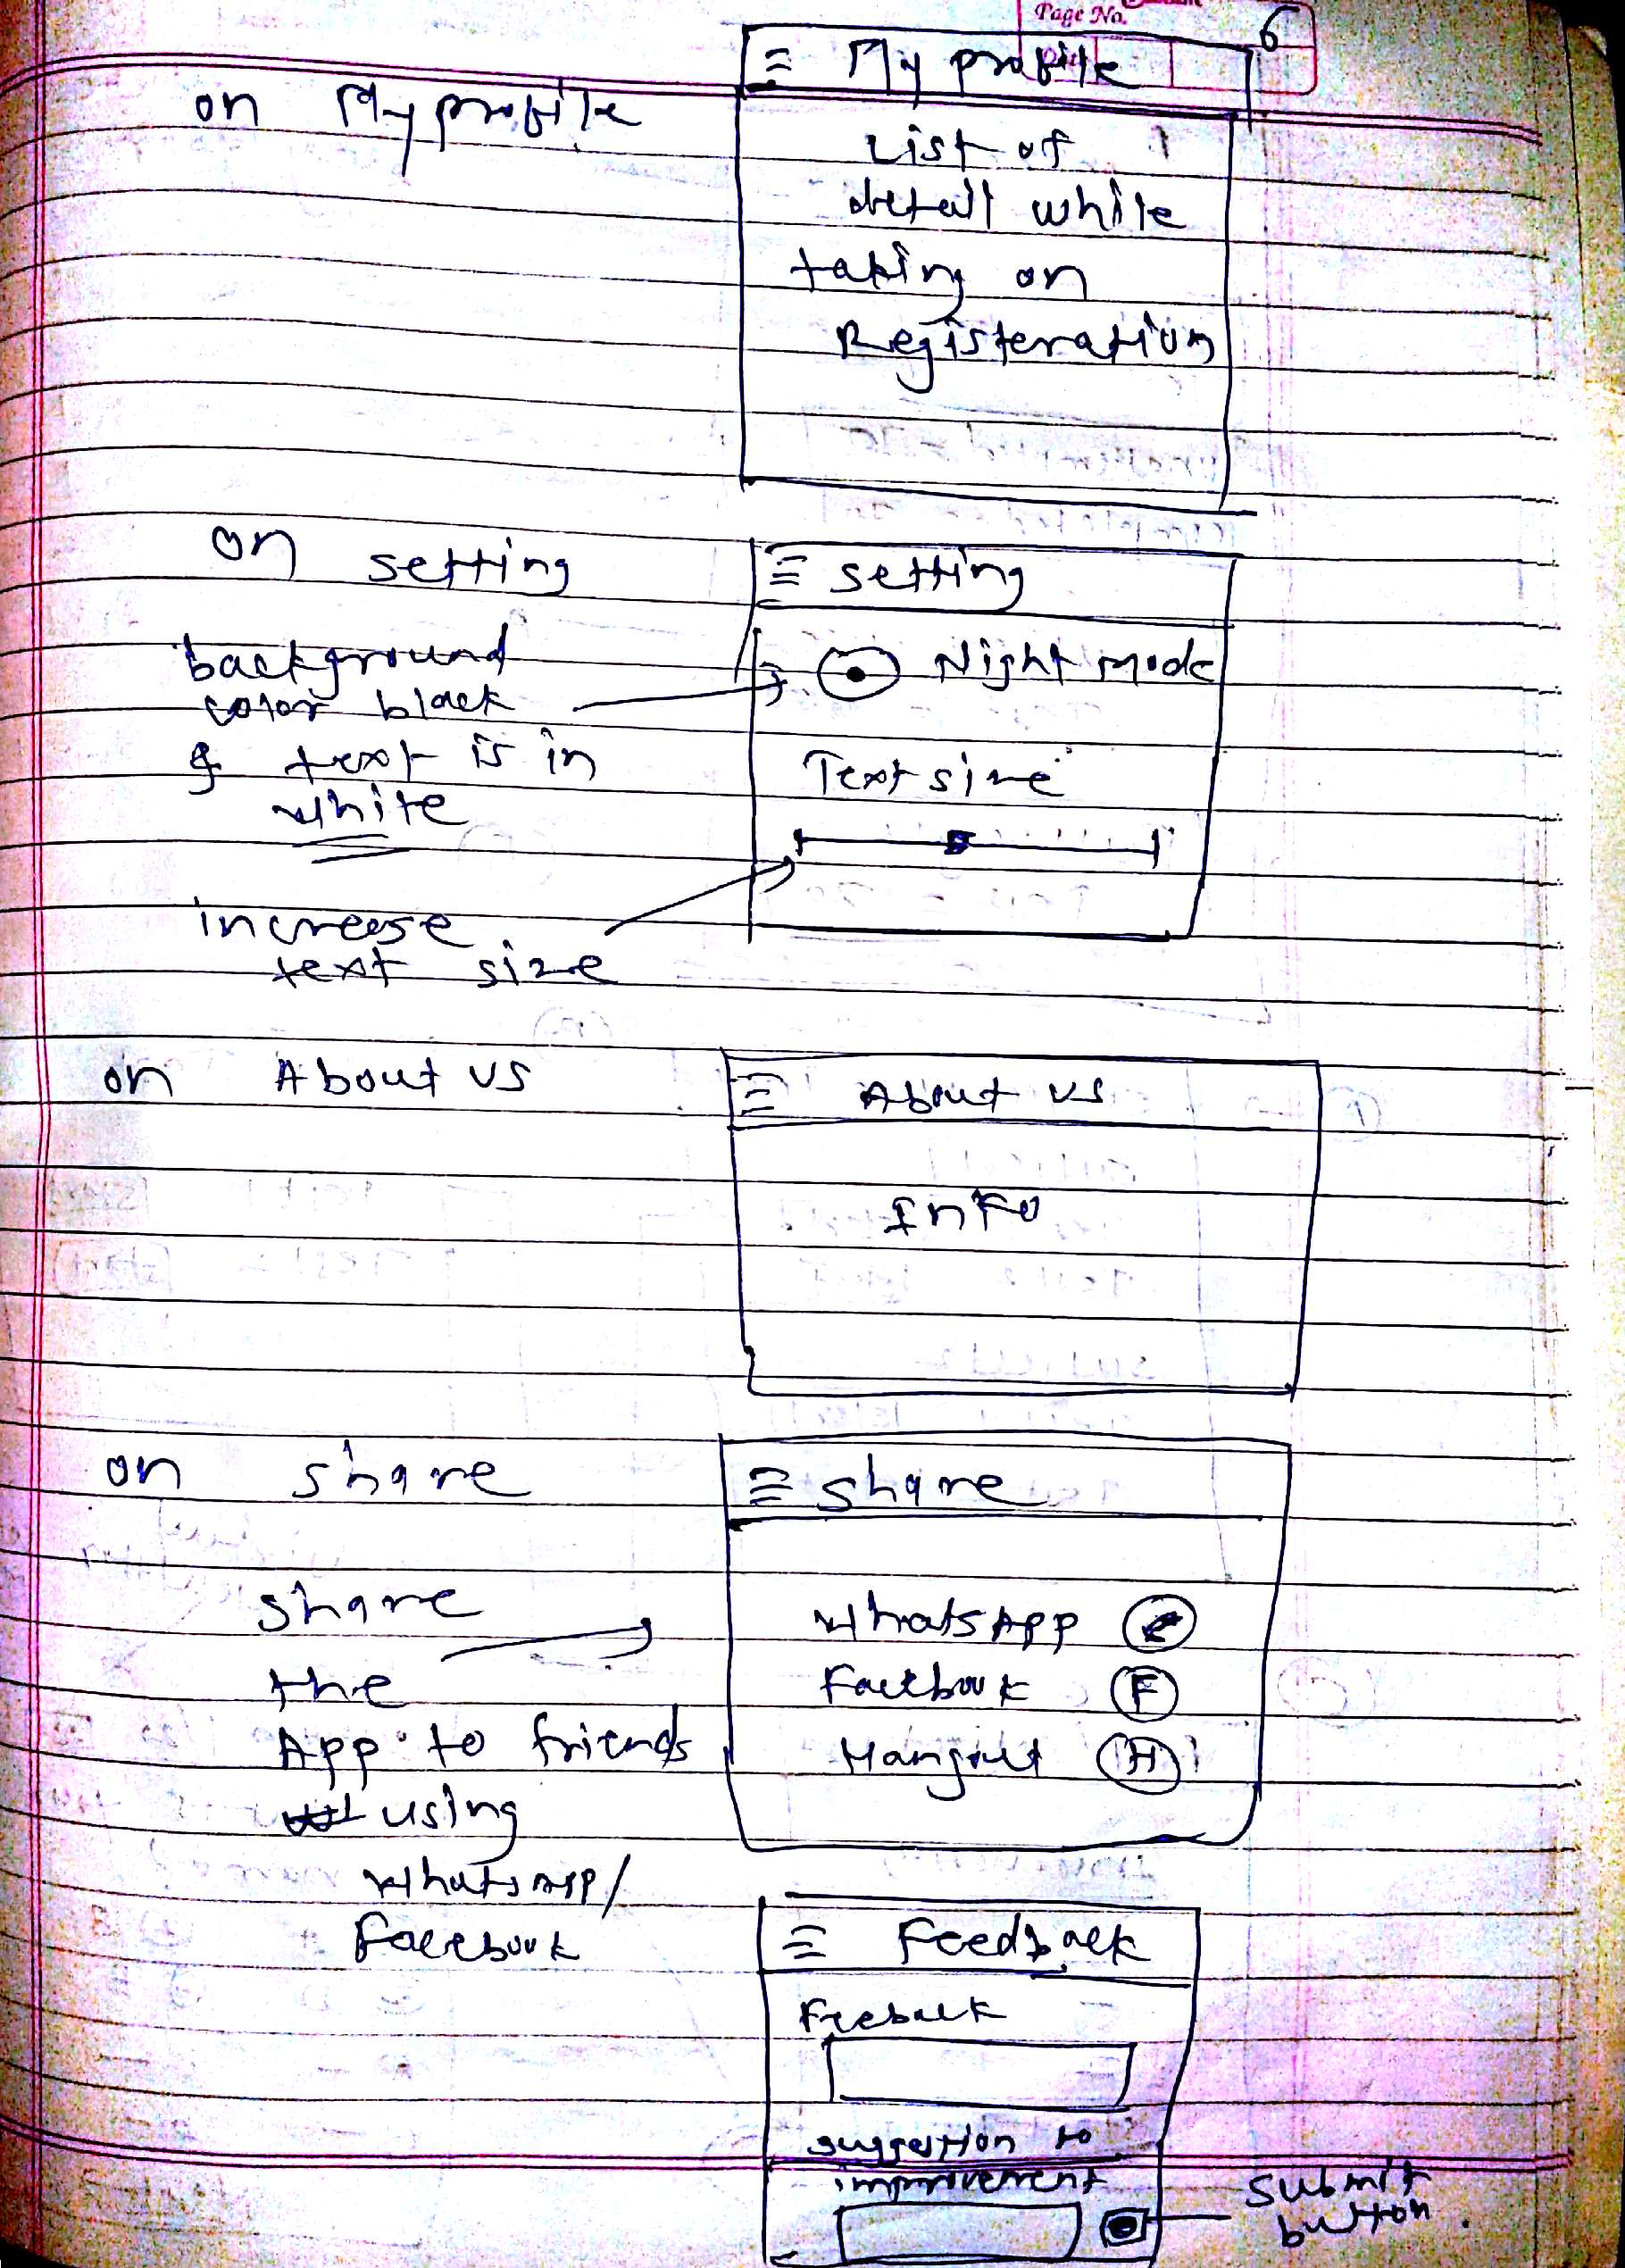 Page No.
6
≡ My profile
on My profile
List of
detail while
taking on
Registeration
on setting
≡ setting
background
color black
& text is in
white
Night mode
Text size
increase
text size
on About us
≡ About us
Info
on share
≡ share
share
the
App to friends
using
whatsapp/
Facebook
whatsApp
Facebook F
Hangout H
≡ Feedback
Feeback
suggestion to
improvement
submit
button.